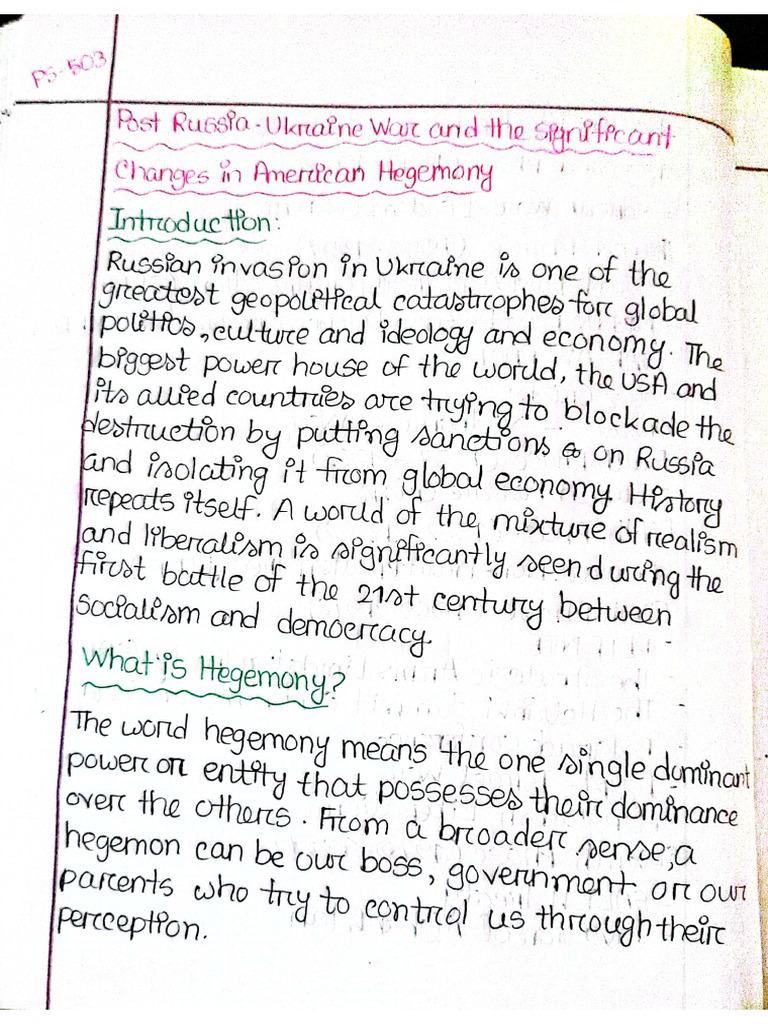 PS-503
Post Russia-Ukraine War and the significant
Changes in American Hegemony
Introduction:
Russian invasion in Ukraine is one of the
greatest geopolitical catastrophes for global
politics, culture and ideology and economy. The
biggest power house of the world, the USA and
its allied countries are trying to blockade the
destruction by putting sanctions on Russia
and isolating it from global economy. History
repeats itself. A world of the mixture of realism
and liberalism is significantly seen during the
first battle of the 21st century between
socialism and democracy.
What is Hegemony?
The word hegemony means the one single dominant
power or entity that possesses their dominance
over the others. From a broader sense, a
hegemon can be our boss, government or our
parents who try to control us through their
perception.